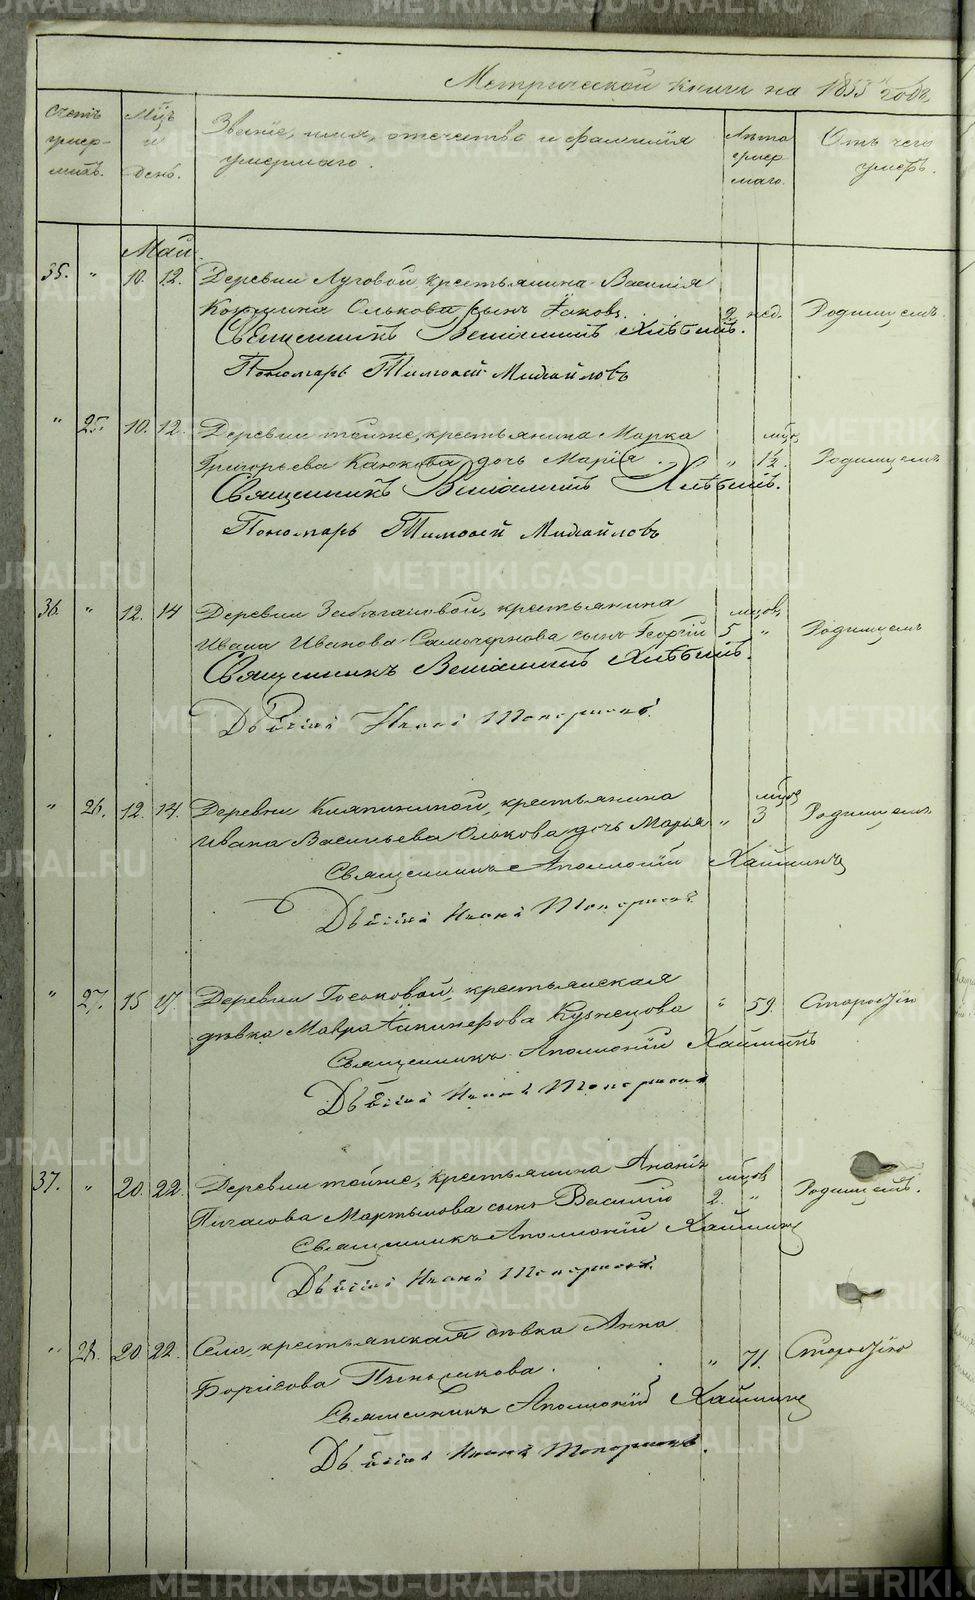 Метрической книги на 1855 года
Счетъ умер-шихъ.
Мѣцъ и День.
Званіе, имя, отечество и фамилія умершаго.
Лѣта умер шаго.
Отъ чего умеръ.
Май.
35. „ 10. 12. Деревни Луговой, крестьянина Василія
Олькова сынъ Іаковъ. 2 нед. Родимцемъ.
Священникъ Веніаминъ Хлѣбинъ.
Пономарь Тимоѳей Михайловъ
„ 25. 10. 12. Деревни тойже, крестьянина Марка мѣц.
Григорьева Каюкова дочь Марія „ 1½. Родимцемъ
Священникъ Веніаминъ Хлѣбинъ.
Пономарь Тимоѳей Михайловъ
36. „ 12. 14 Деревни крестьянина мѣцов.
Ивана Иванова сынъ Георгій 5 „ Родимцемъ
Священникъ Веніаминъ Хлѣбинъ.
Дьячекъ Иванъ Топорковъ.
„ 26. 12. 14. Деревни крестьянина мѣцов
Ивана Васильева Олькова дочь Марья „ 3 Родимцемъ.
Священникъ Аполлоній Хаймин
Дьячекъ Иванъ Топорковъ
„ 27. 15 17. Деревни крестьянская
дѣвка Мавра Кузнецова „ 59. Старостію
Священникъ Аполлоній Хаймин
Дьячекъ Иванъ Топорковъ
37. „ 20. 22. Деревни тойже, крестьянина Ананія мѣцов
Мартынова сынъ Василій 2. „ Родимцемъ.
Священникъ Аполлоній Хаймин
Дьячекъ Иванъ Топорковъ.
„ 28. 20 22. Села, крестьянская дѣвка Анна
Борисова Пеньшакова. „ 71. Старостію
Священникъ Аполлоній Хаймин
Дьячекъ Иванъ Топорковъ.
METRIKI.GASO-URAL.RU